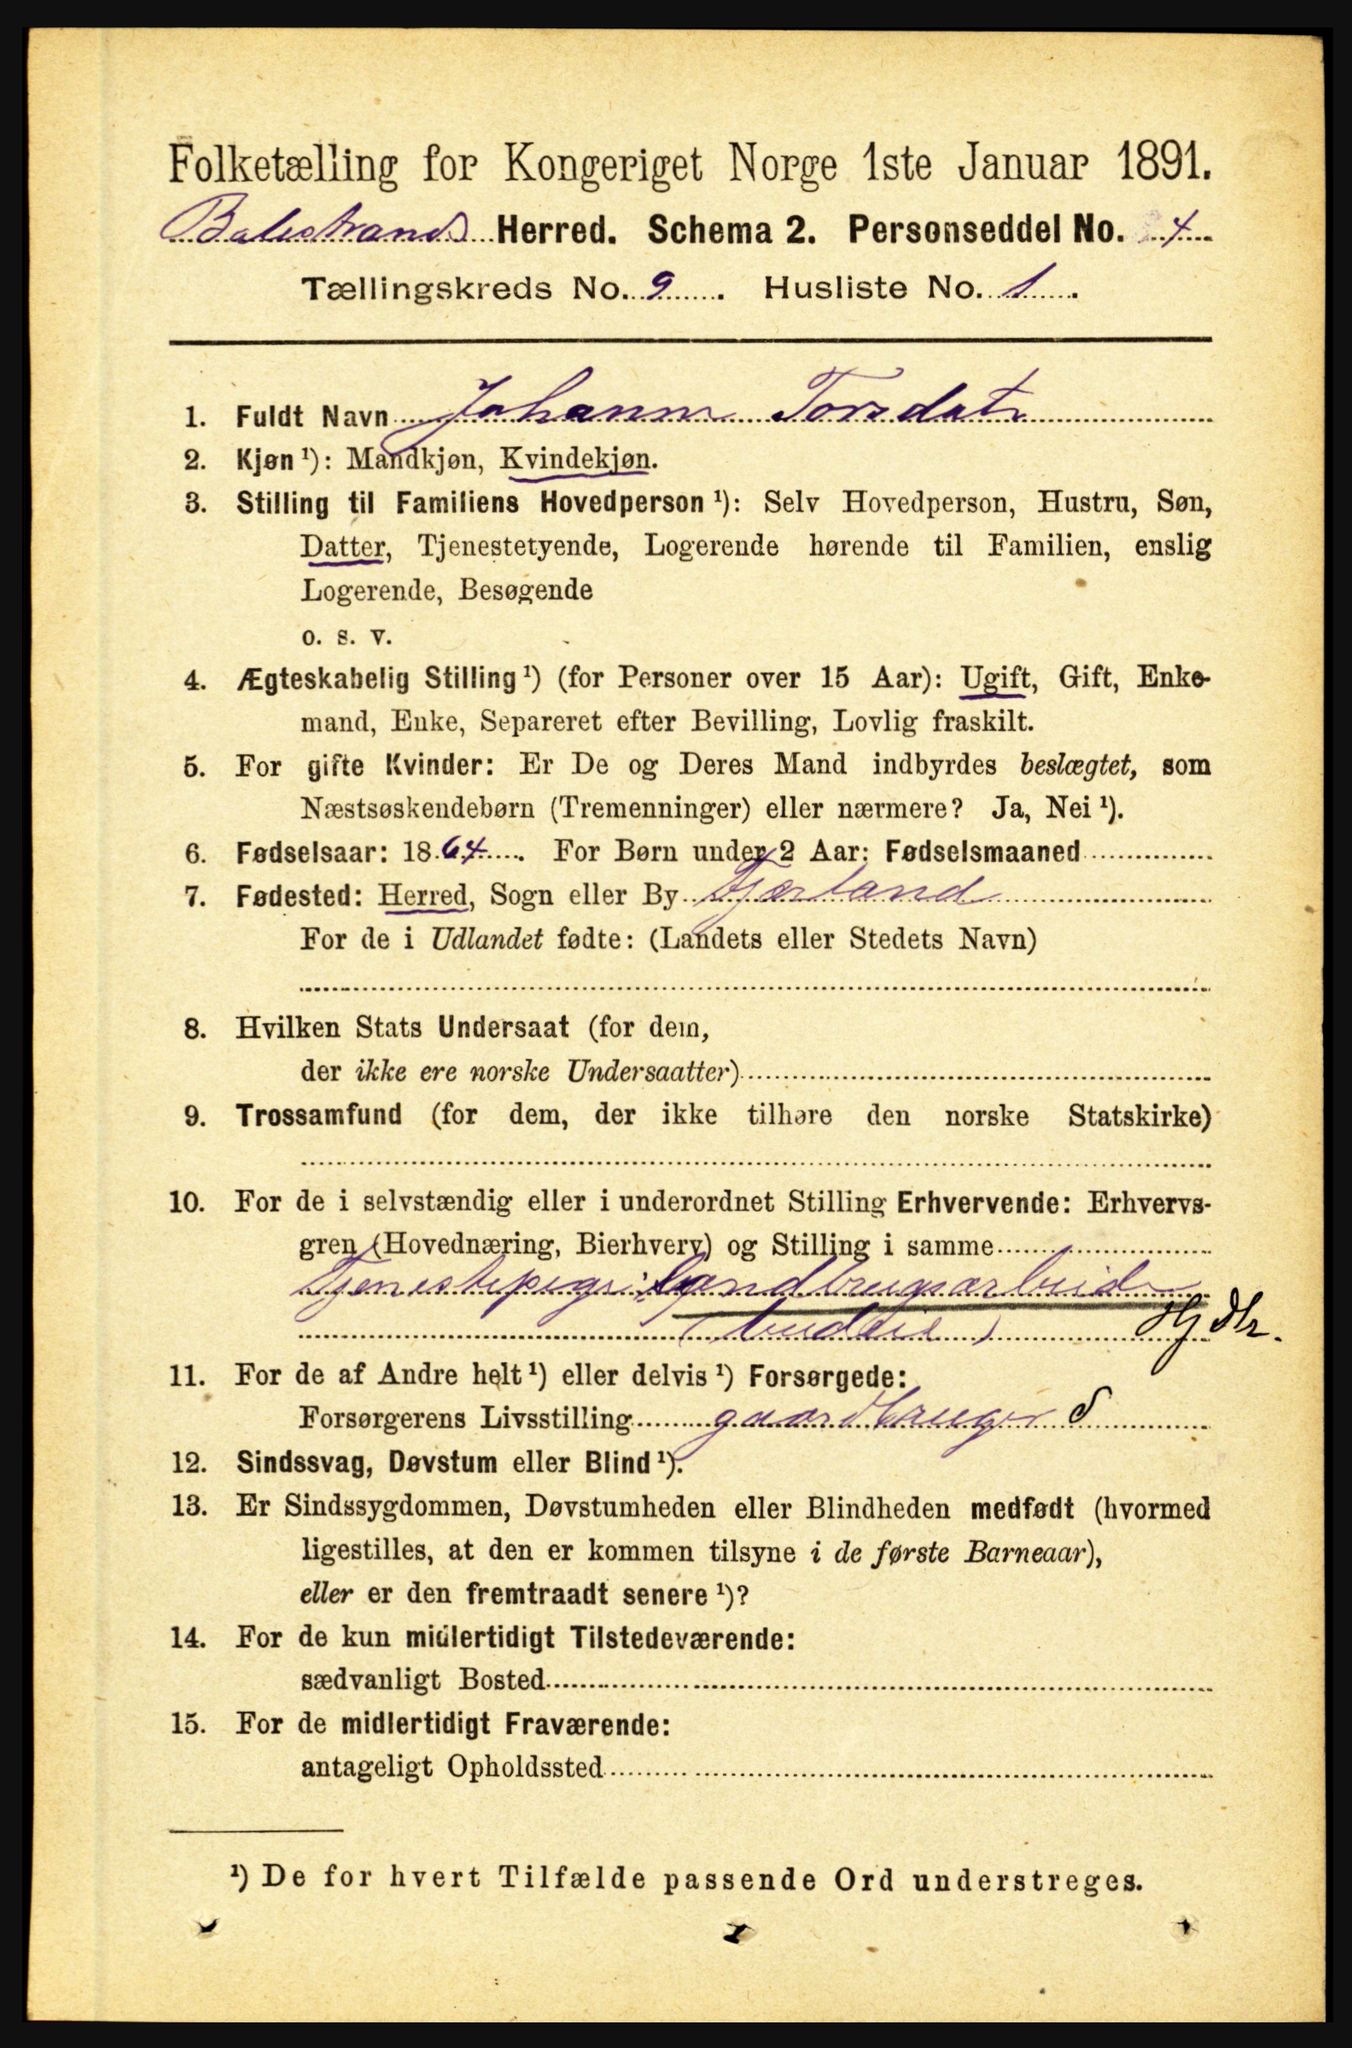 Folketælling for Kongeriget Norge 1ste Januar 1891.
Balestrands Herred. Schema 2. Personseddel No. 4
Tællingskreds No. 9. Husliste No. 1.
1. Fuldt Navn Johanne Torsdatr
2. Kjøn ¹): Mandkjøn, Kvindekjøn.
3. Stilling til Familiens Hovedperson ¹): Selv Hovedperson, Hustru, Søn,
Datter, Tjenestetyende, Logerende hørende til Familien, enslig
Logerende, Besøgende
o. s. v.
4. Ægteskabelig Stilling ¹) (for Personer over 15 Aar): Ugift, Gift, Enke-
mand, Enke, Separeret efter Bevilling, Lovlig fraskilt.
5. For gifte Kvinder: Er De og Deres Mand indbyrdes beslægtet, som
Næstsøskendebørn (Tremenninger) eller nærmere? Ja, Nei ¹).
6. Fødselsaar: 1864. For Børn under 2 Aar: Fødselsmaaned
7. Fødested: Herred, Sogn eller By Fjærland
For de i Udlandet fødte: (Landets eller Stedets Navn)
8. Hvilken Stats Undersaat (for dem,
der ikke ere norske Undersaatter)
9. Trossamfund (for dem, der ikke tilhøre den norske Statskirke)
10. For de i selvstændig eller i underordnet Stilling Erhvervende: Erhvervs-
gren (Hovednæring, Bierhverv) og Stilling i samme
Tjenestepige: Landbrugsarbeide
(budeie) Hj Dtr.
11. For de af Andre helt ¹) eller delvis ¹) Forsørgede:
Forsørgerens Livsstilling gaardbruger S
12. Sindssvag, Døvstum eller Blind ¹).
13. Er Sindssygdommen, Døvstumheden eller Blindheden medfødt (hvormed
ligestilles, at den er kommen tilsyne i de første Barneaar),
eller er den fremtraadt senere ¹)?
14. For de kun midlertidigt Tilstedeværende:
sædvanligt Bosted
15. For de midlertidigt Fraværende:
antageligt Opholdssted
¹) De for hvert Tilfælde passende Ord understreges.